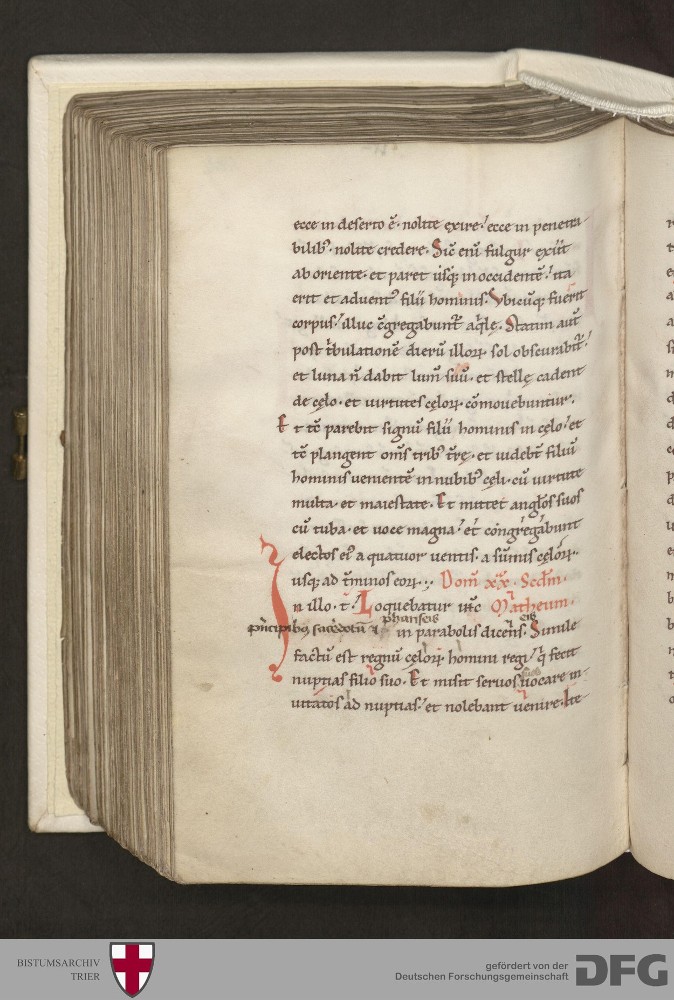 ecce in deserto ē· nolite exire! ecce in penetra
bilib᾽· nolite credere· Sic̄ eni᷉ fulgur exiit
ab oriente· et paret usq; in occidentē! ita
erit et aduent᾽ filii hominis· Vbicūq; fuerit
corpus! illuc c̄gregabunt̄ aq̇lę· Statim aut̄
post t̄bulationē dierū illoꝝ· sol obscurabit̄!
et luna n̄ dabit lum̄ suū· et stellę cadent
de cęlo· et uirtutes cęloꝝ· cōmouebuntur·
Et tc̄ parebit signū filii hominis in cęlo! et
tc̄ plangent om̄s trib᾽ t̄rę· et uidebt̄ filiū
hominis uenientē in nubib᾽ cęli· cū uirtute
multa· et maiestate· Et mittet angl̄os suos
cū tuba· et uoce magna! et congregabunt
electos ei᾽ a quatuor uentis· a sūmis cęloꝝ·
usq; ad t̄minos eoꝝ· Dom̄ xx· Scd̄m·
In illo· t̄· Loquebatur ihc Matheum·
phariseis
p̄ncipib᾽ sacerdotū & in parabolis dicens· Simile
factū est regnū cęloꝝ· homini regi! q̇ fecit
nuptias filio suo· Et misit seruos suos uocare in
uitatos ad nuptias! et nolebant uenire· Ite
BISTUMSARCHIV
TRIER
gefördert von der
Deutschen Forschungsgemeinschaft
DFG